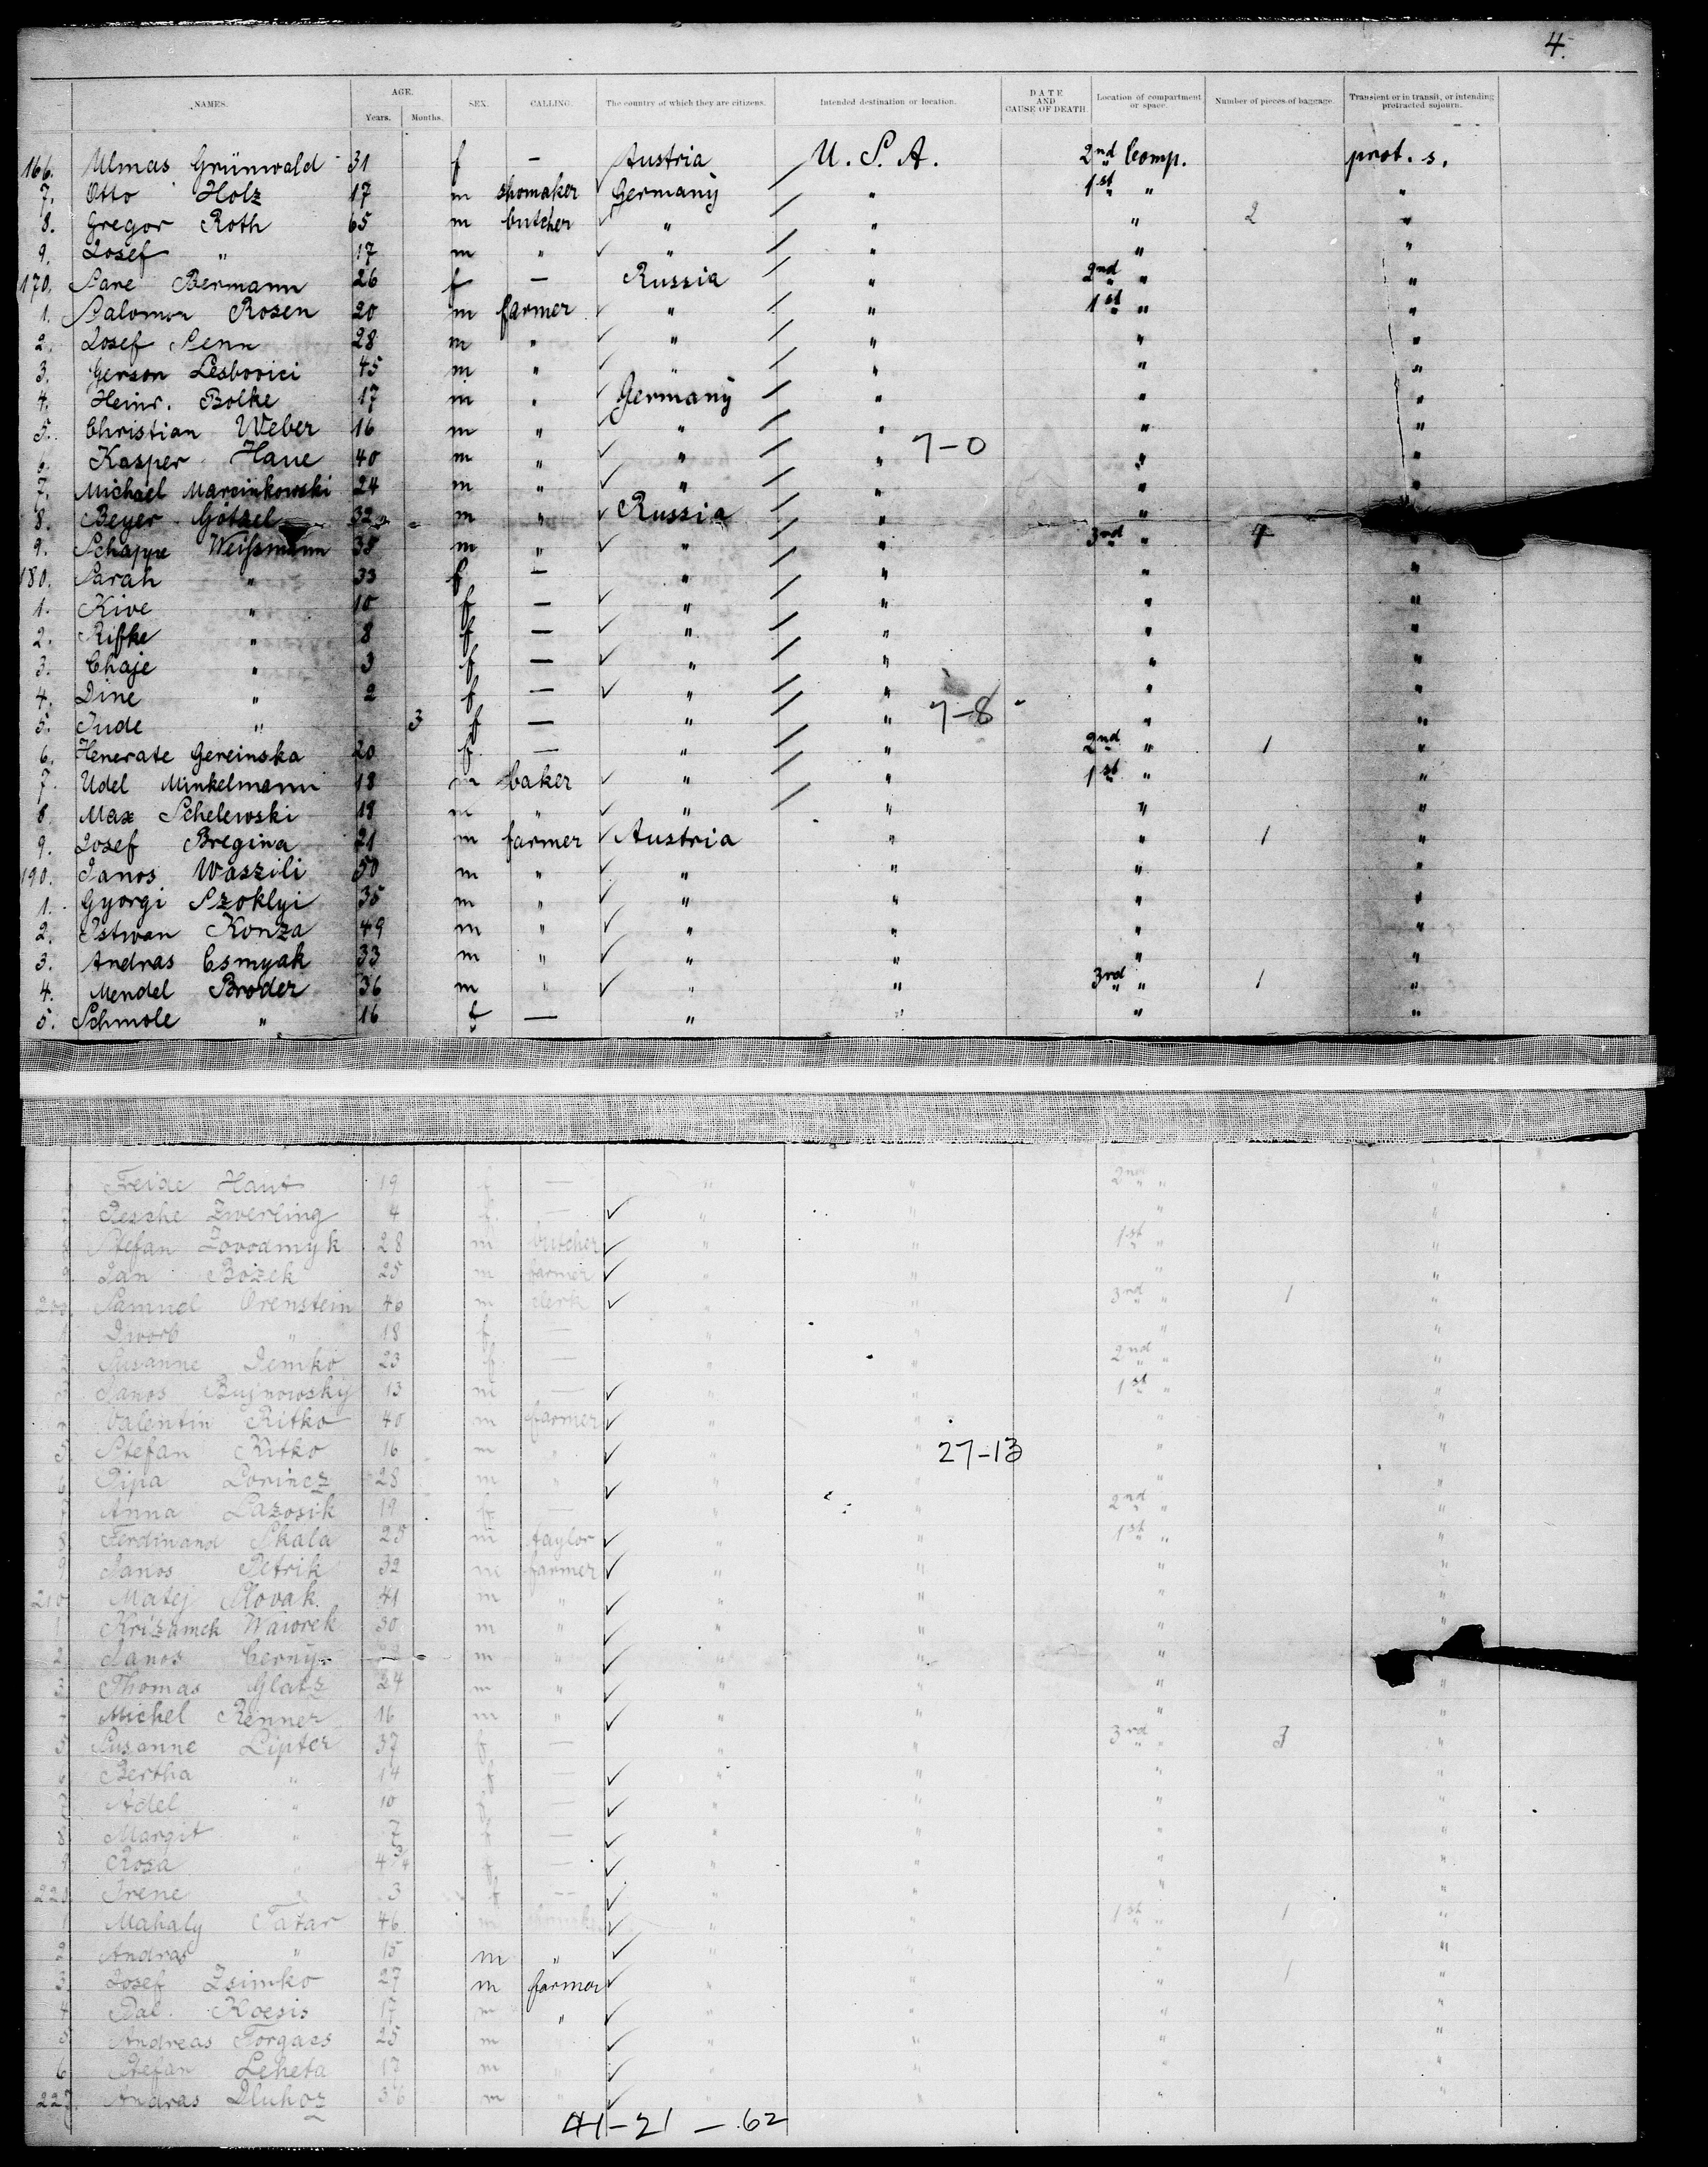 4.
NAMES. AGE. Years. Months. SEX. CALLING. The country of which they are citizens. Intended destination or location. DATE AND CAUSE OF DEATH. Location of compartment or space. Number of pieces of baggage. Transient or in transit, or intending protracted sojourn.
166. Ulmas Grünwald 31 f — Austria U. S. A. 2nd Comp. prot. s.
7. Otto Holz 17 m shomaker Germany " 1st " "
8. Gregor Roth 65 m butcher " " " 2 "
9. Josef " 17 m " " " " "
170. Sare Bermann 26 f — Russia " 2nd " "
1. Salomon Rosen 20 m farmer " " 1st " "
2. Josef Senn 28 m " " " " "
3. Gerson Lesbovici 45 m " " " " "
4. Heinr. Bolke 17 m " Germany " " "
5. Christian Weber 16 m " " " " "
6. Kasper Haue 40 m " " " 7-0 " "
7. Michael Marcinkowski 24 m " " " " "
8. Beyer Götzel 32 m " Russia " " "
9. Schappe Weissmann 38 m " " " 3rd " 4 "
180. Sarah " 33 f — " " " "
1. Kive " 10 f — " " " "
2. Rifke " 8 f — " " " "
3. Chaje " 3 f — " " " "
4. Dine " 2 f — " " " "
5. Jude " 3 f — " " 7-8 " "
6. Henerate Gereinska 20 f — " " 2nd " 1 "
7. Udel Minkelmann 18 m baker " " 1st " "
8. Max Schelewski 18 m " " " "
9. Josef Bregina 21 m farmer Austria " " 1 "
190. Janos Waszili 50 m " " " " "
1. Gyorgi Szoklyi 35 m " " " " "
2. Istwan Konza 49 m " " " " "
3. Andras Csmyak 33 m " " " " "
4. Mendel Broder 36 m " " " 3rd " 1 "
5. Schmole " 16 f — " " " "
Freide Haut 19 f — " " 2nd " "
Pesche Zwerling 4 f — " " " "
Stefan Zovodmyk 28 m butcher " " 1st " "
9 Jan Bozek 25 m farmer " " " "
200. Samuel Orenstein 46 m clerk " " 3rd " 1 "
1 Dworb " 18 f — " " "
2 Susanne Demko 23 f — " " 2nd " "
3 Janos Bujnowsky 13 m — " " 1st " "
4 Valentin Ritko 40 m farmer " " " "
5. Stefan Ritko 16 m " " " 27-13 " "
6 Pipa Lorincz 28 m " " " "
7 Anna Lazosik 19 f — " " 2nd " "
8 Ferdinand Skala 25 m taylor " " 1st " "
9 Janos Petrik 32 m farmer " " " "
210 Matej Slovak 41 m " " " " "
1 Krizamek Waiorek 30 m " " " " "
2 Janos Cerny m " " " " "
3. Thomas Glatz 24 m " " " " "
Michel Renner 16 m " " " " "
5 Susanne Lipter 37 f — " " 3rd " 3 "
6 Bertha " 14 f — " " " "
7 Adel " 10 f — " " " "
8 Margit " 7 f — " " " "
9 Rosa " 4 3/4 f — " " " "
220. Irene " 3 f — " " " "
1 Mahaly Tatar 46 m " " 1st " 1 "
2. Andras " 15 m " " " " "
3. Josef Zsimko 27 m farmer " " " 1 "
4 Pal. Kocsis 17 m " " " " "
5 Andreas Forgacs 25 m " " " "
6 Stefan Leheta 17 m " " " "
227. Andras Dluhoz 36 m " " " " "
41-21 — 62